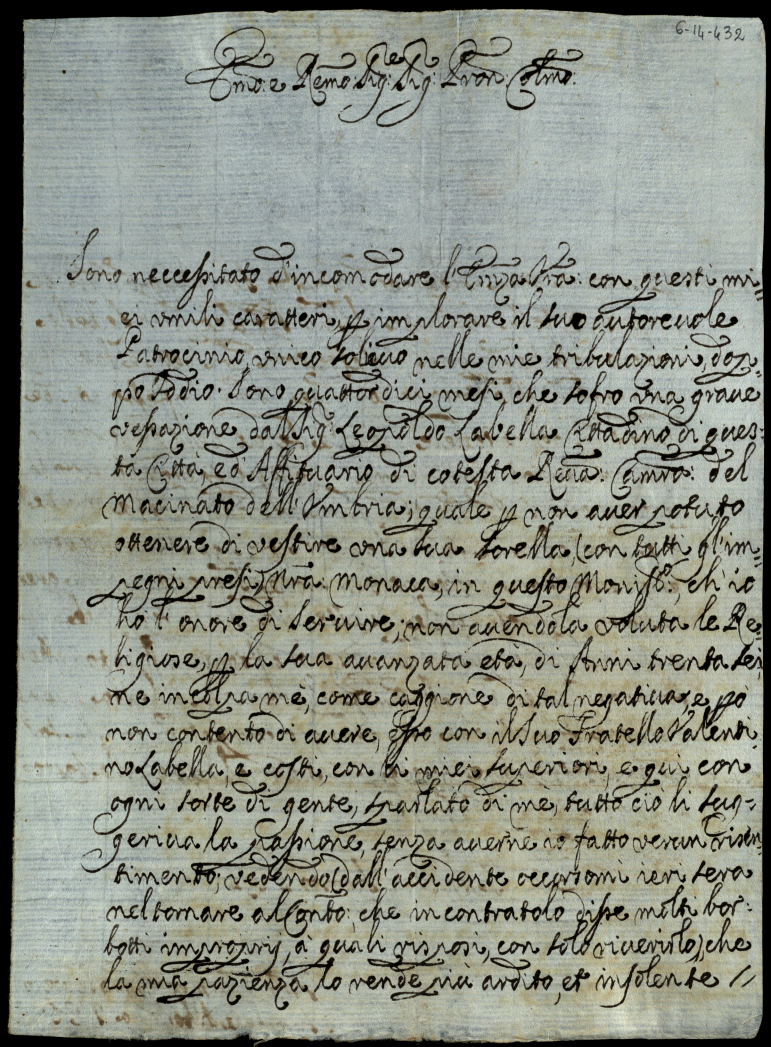 6-14-432
Emo: e Rēmo Sig: Sig: Pron Colmo:
Sono neccessitato d'incomodare l'Emza Vrā: con questi mi=
ei vmili caratteri, p implorare il suo autoreuole
Patrocinio, vnico solieuo nelle mie tribulazioni, dop=
po Iddio. Sono quattordici mesi, che sofro vna graue
vessazione dal Sig: Leopoldo Labella Cittadino di ques=
ta Città, ed Affittuario di cotesta Reuā: Camrā: del
Macinato dell'Vmbria; quale p non auer potuto
ottenere di vestire vna sua sorella, (con tutti gl'im=
pegni presi) Nrā: Monaca, in questo Monistº:, ch'io
hò l'onore di seruire; non auendola voluta le Re=
ligiose, p la sua auanzata età, di Anni trenta sei,
ne incolpa mè, come caggione di tal negatiua, e po
non contento di auere, esso con il suo Fratello Valenti
no Labella, e costi, con li miei superiori, e qui con
ogni sorte di gente, sparlato di mè, tutto ciò li sug=
geriua la passione, senza auerne io fatto verun risen=
timento; vedendo (dall'accidente occorsomi ieri sera
nel tornare al Conto: che incontratolo disse molti bor=
botti improprij, à quali risposi, con solo riuerirlo,) che
la mia pazienza lo rende più ardito, et insolente //